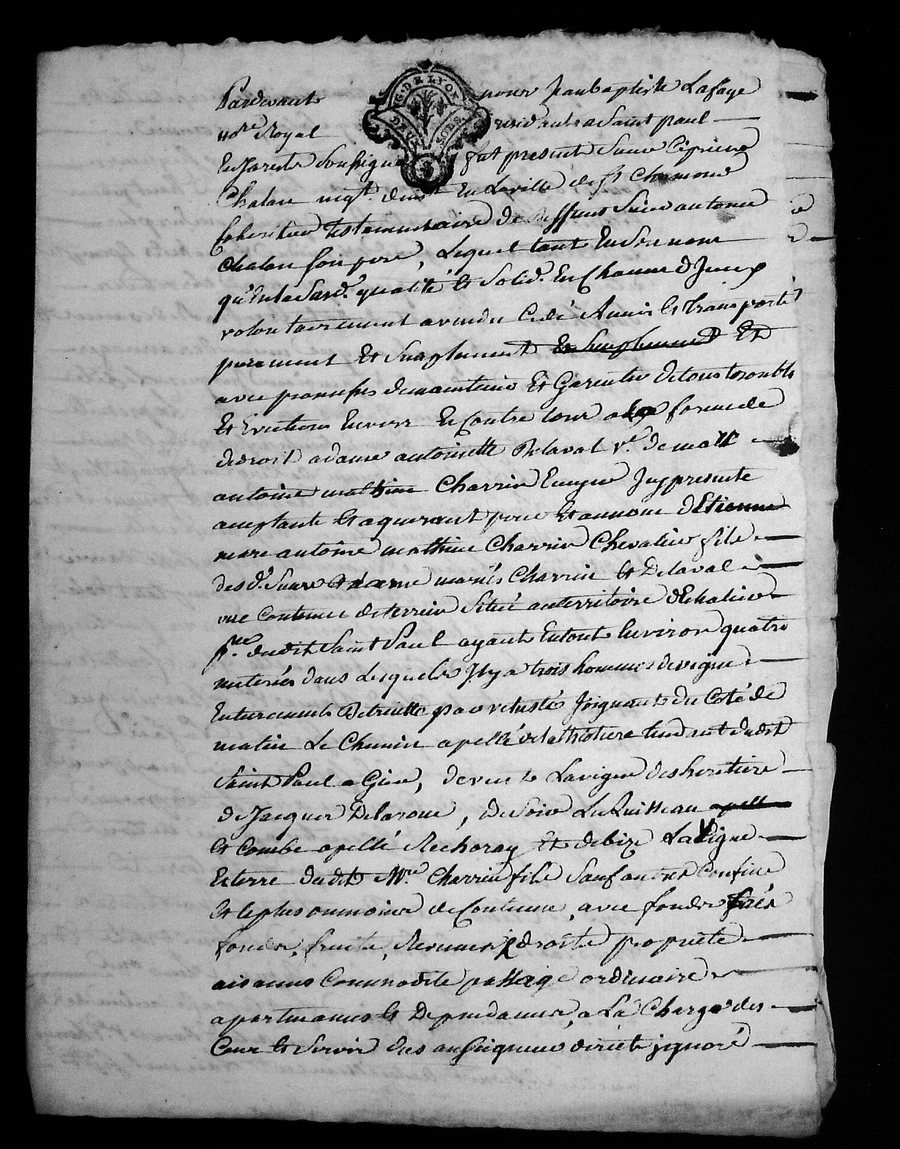 G. DE LYON
DEUX SOLS
Pardevant nous Jean baptiste Lafaye
nore Royal residant a Saint paul
En Jarest Soussigné fut present Sieur Ciprien
Chalan negt. demt En La ville de St Chamond
Coheritier testamentaire de deffunt Sieur antoine
Chalan Son pere, Lequel tant En Son nom
qu'En la Sard. qualité Et Solid. En Chacune d'Iceux
volontairement a vendu Cedé Remis Et transporté
purement Et Simplement Et Simplement Et
avec promesses de maintenir Et Garentir De tous troubles
Et Evictions Envers Et Contre tous a la forme de
droit a dame antoinette Delaval ve. de
antoine mathieu Charrin Ecuyer Icy presente
aceptante Et aquerant pour Et au nom d'Etienne
marc antoine mathieu Charrin Chevalier fils
des d. Sieur Et dame mariés Charrin Et Delaval
une Contenue de terrein Située au territoire d'Echalier
psse. dudit Saint Paul ayant En tout Environ quatre
meterées dans Lesquelles Il y a trois hommes de vigne
Entierement Detruite par vetusté Joignant du Coté de
matin Le Chemin apellé de la tendant dudit
Saint Paul a Gier, de vent La vigne des heritiers
de Jacques Delaroue, de Soir Le Ruisseau apellé
Et Combe apellé Rechoray Et de bize La Vigne
Et terre dudit Mre. Charrin fils Sauf autres Confins
Et le plus ou moins de Contenue, avec fonds tres
fonds, fruits, Revenus droits propriété
aisances Commodité passage ordinaire
apartenances Et Dependances, a La Charge des
Cens Et Servis dus au Seigneur direct ignoré